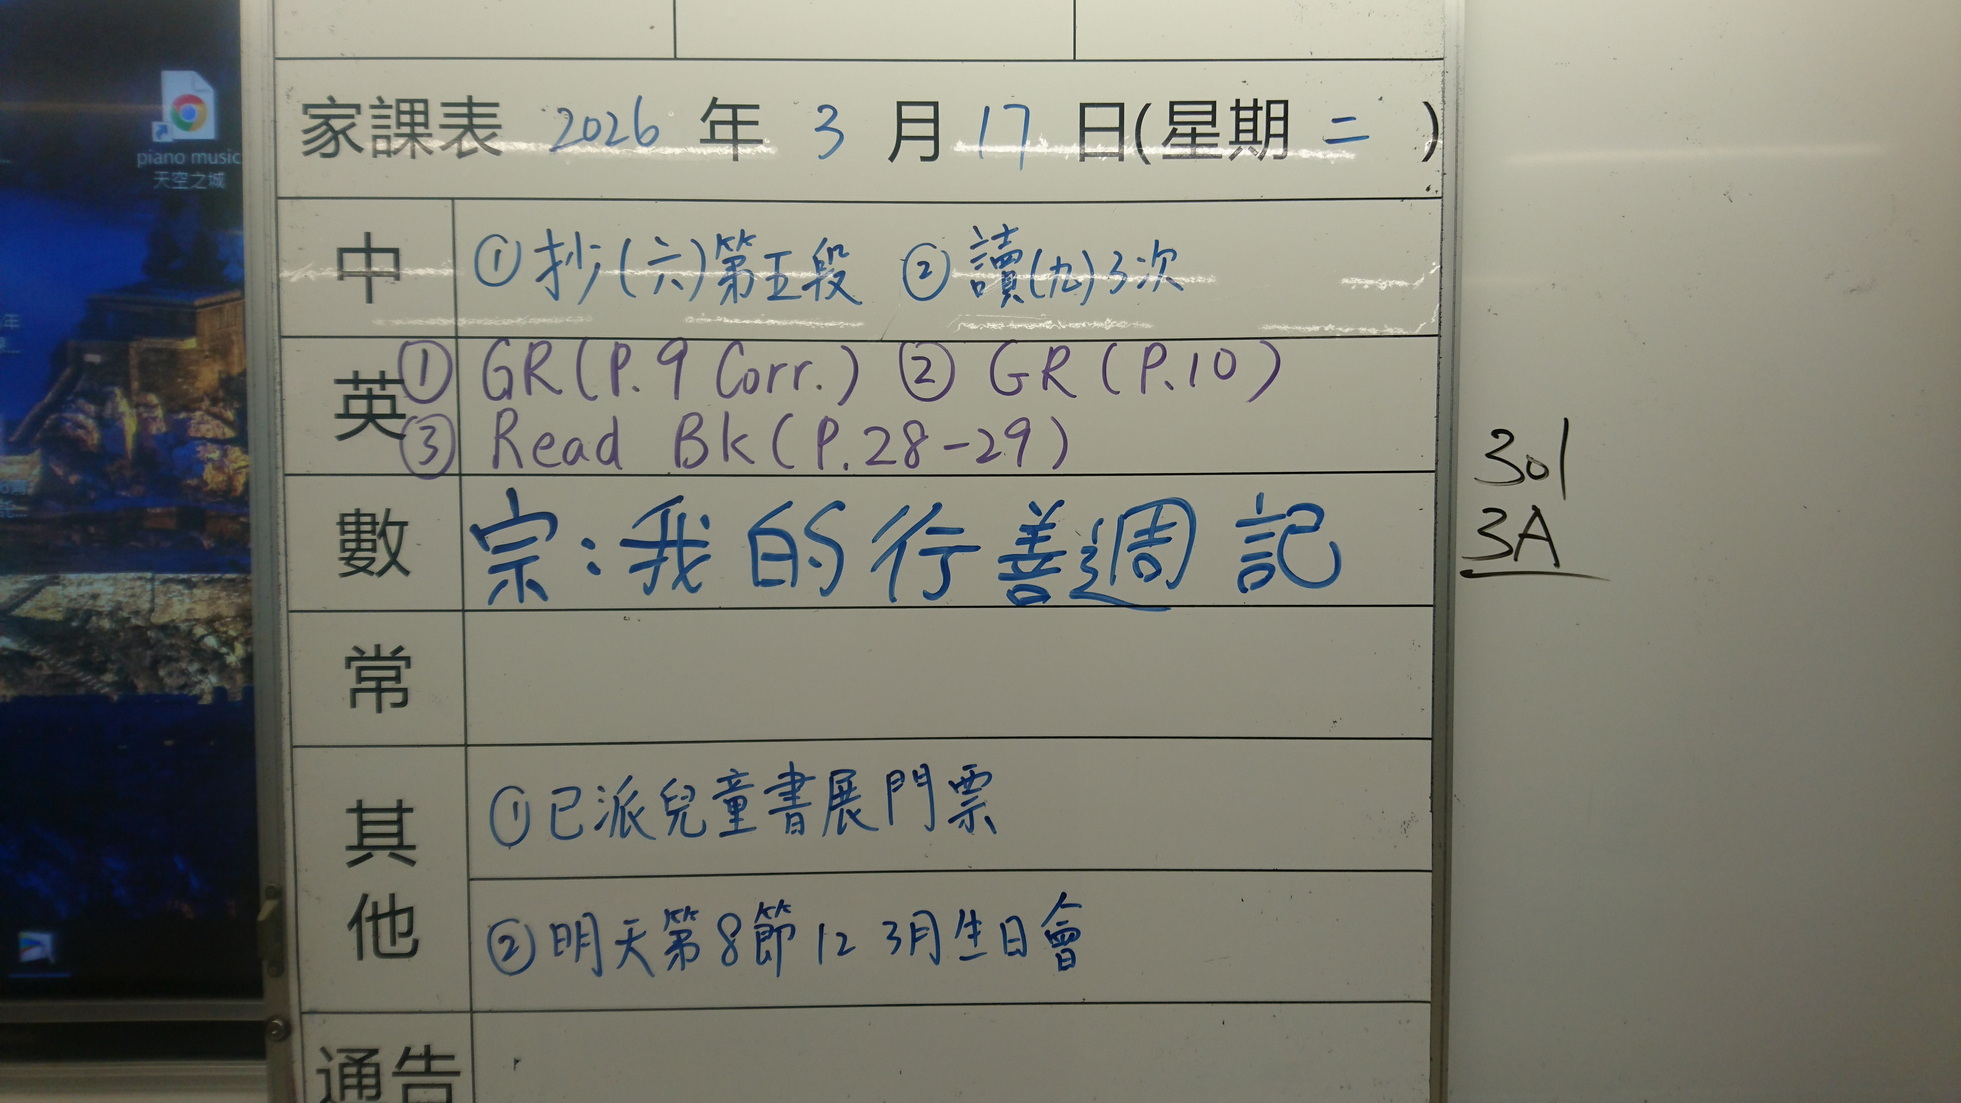 piano music
天空之城
家課表 2026 年 3 月 17 日(星期 二 )
中 ①抄(六)第五段 ②讀(九)3次
英 ① GR(P.9 Corr.) ② GR(P.10)
③ Read Bk(P.28-29)
301
3A
數 宗:我的行善週記
常
其他 ①已派兒童書展門票
②明天第8節 12 3月生日會
通告